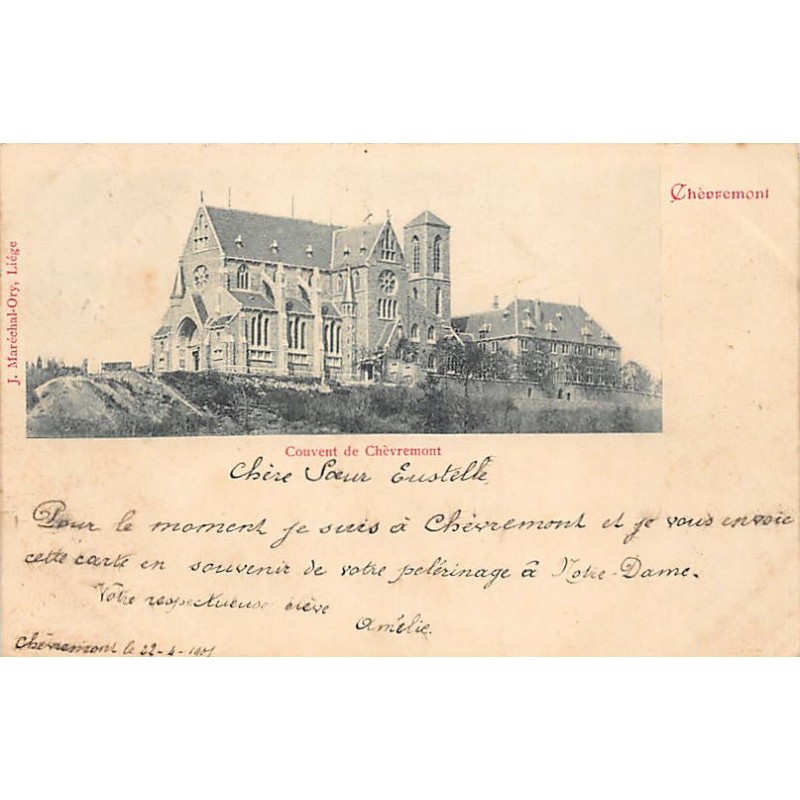 Chèvremont
J. Maréchal-Ory, Liége
Couvent de Chèvremont
Chère Sœur Eustelle,
Pour le moment je suis à Chèvremont et je vous envoie
cette carte en souvenir de votre pelérinage à Notre-Dame.
Votre respectueuse élève
Amélie.
Chèvremont le 22-4-1901